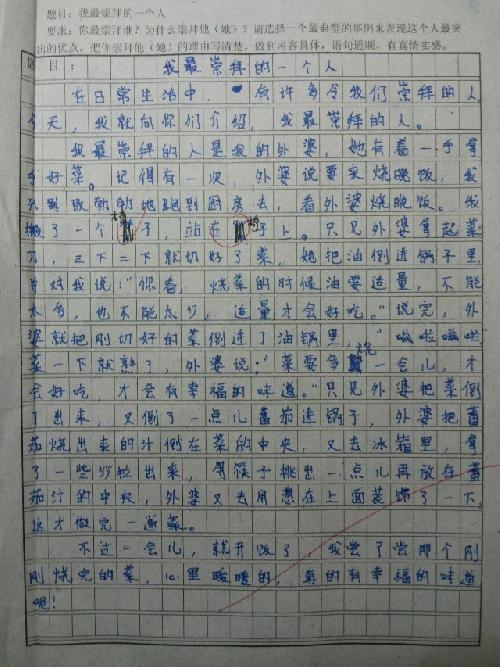 题目：我最崇拜的一个人
要求：你最崇拜谁？为什么崇拜他（她）？请选择一个最典型的事例来表现这个人最突
出的优点，把你崇拜他（她）的理由写清楚，做到内容具体，语句通顺，有真情实感。
题目：我最崇拜的一个人
在日常生活中，有许多令我们崇拜的人，
今天，我就向你们介绍，我最崇拜的人。
我最崇拜的人是我的外婆，她有着一手拿
手好菜。记得有一次，外婆说要来烧晚饭，我
地跑到厨房去，看外婆烧晚饭。我
搬了一个椅子，站在椅子上。只见外婆拿起菜
刀，三下二下就切好了菜，她把油倒进锅子里，
并对我说：“你看，烧菜的时候油要适量，不能
太多，也不能太少，适量才会好吃。”说完，外
婆就把刚切好的菜倒进了油锅里，“嗞啦嗞啦”
菜一下就熟了，外婆说：“菜要多烧一会儿，才
会好吃，才会有幸福的味道。”只见外婆把菜倒
了出来，又倒了一点儿番茄进锅子，外婆把番
茄烧出来的汁倒在菜的中央，又去冰箱里，拿
了一些沙拉出来，用筷子挑出一点儿再放在番
茄汁的中央，外婆又去用葱在上面装饰了一下，
这才做完一道菜。
不过一会儿，就开饭了，我尝了尝那个刚
刚烧完的菜，心里暖暖的，真的有幸福的味道
呢！